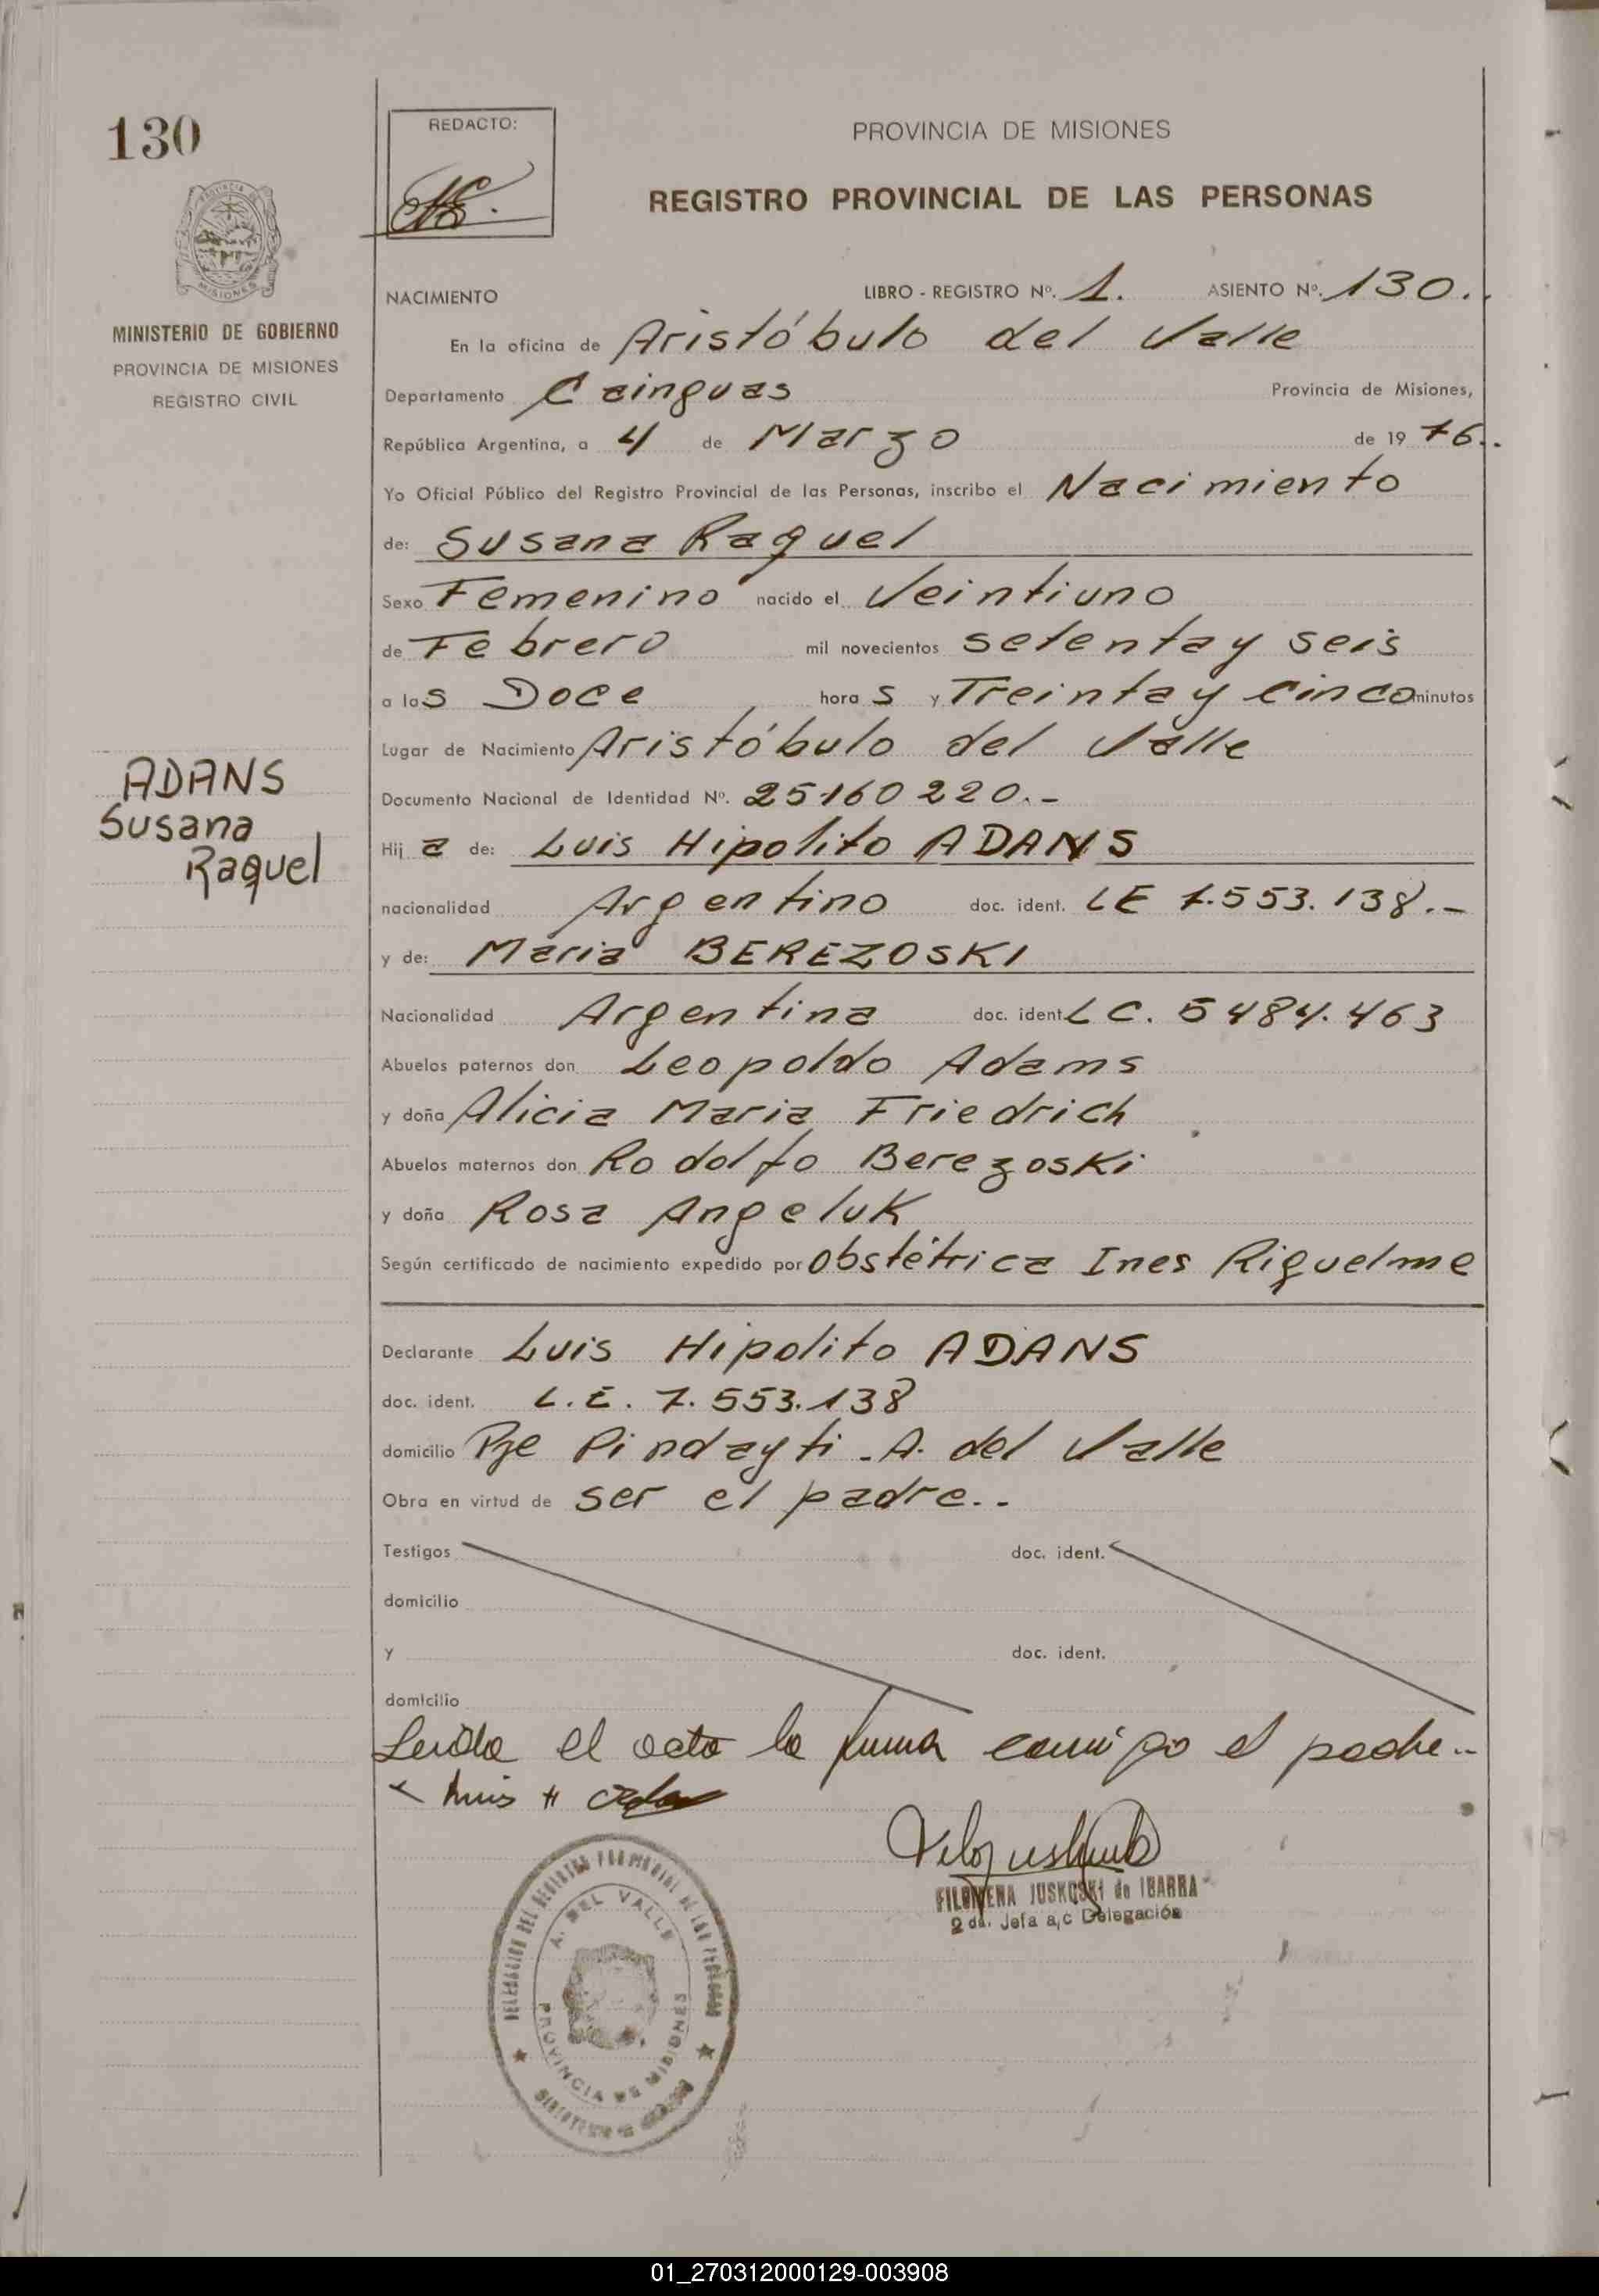 130
REDACTO:
PROVINCIA DE MISIONES
REGISTRO PROVINCIAL DE LAS PERSONAS
MINISTERIO DE GOBIERNO
PROVINCIA DE MISIONES
REGISTRO CIVIL
NACIMIENTO LIBRO - REGISTRO Nº. 1. ASIENTO Nº. 130.
En la oficina de Aristóbulo del Valle
Departamento Cainguas Provincia de Misiones,
República Argentina, a 4 de Marzo de 1976.
Yo Oficial Público del Registro Provincial de las Personas, inscribo el Nacimiento
de: Susana Raquel
Sexo Femenino nacido el Veintiuno
de Febrero mil novecientos setenta y seis
a las Doce horas y Treinta y Cinco minutos
Lugar de Nacimiento Aristóbulo del Valle
ADANS
Susana
Raquel
Documento Nacional de Identidad Nº. 25160220.-
Hija de: Luis Hipolito ADANS
nacionalidad Argentino doc. ident. LE 7.553.138.-
y de: Maria BEREZOSKI
Nacionalidad Argentina doc. ident LC. 5484.463
Abuelos paternos don Leopoldo Adams
y doña Alicia Maria Friedrich
Abuelos maternos don Rodolfo Berezoski
y doña Rosa Angeluk
Según certificado de nacimiento expedido por Obstétrica Ines Riguelme
Declarante Luis Hipolito ADANS
doc. ident. L.E. 7.553.138
domicilio Pje Pindayti - A. del Valle
Obra en virtud de ser el padre..
Testigos doc. ident.
domicilio
y doc. ident.
domicilio
Leida el acta la firma conmigo el padre..
Luis H
FILOMENA JUSKOSKI de IBARRA
2 da. Jefa a/c Delegación
DELEGACION DEL REGISTRO PROVINCIAL DE LAS PERSONAS
A. DEL VALLE
PROVINCIA DE MISIONES
01_270312000129-003908